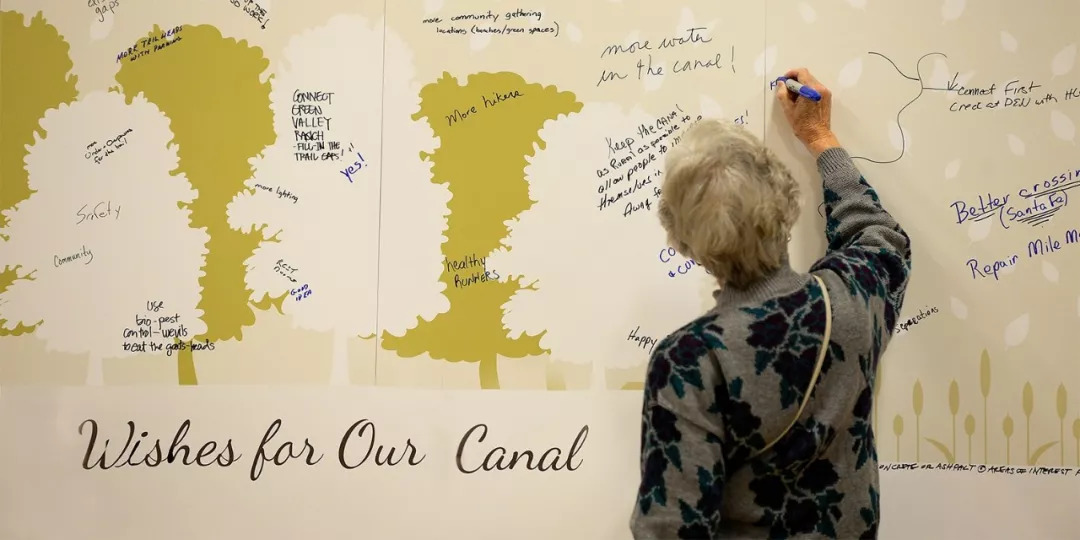 gaps
MORE TRAIL HEADS
WITH PARKING
more community gathering
locations (benches/green spaces)
more water
in the canal!
CONNECT
GREEN
VALLEY
RANCH
-FILL-IN THE
TRAIL GAPS!
yes!
More hikers
Keep the CANAL
as Rural as possible to
allow people to
themselves in
Away
Connect First
Creek at DEN with
more
for the
Safety
Community
more lighting
Rest
Rooms
GOOD
IDEA
healthy
Runners
Better crossin
(Santa Fe)
Repair Mile M
Use
bio-pest
control-wevils
to eat the goats-heads
Happy
Wishes for Our Canal
ONCRETE OR ASPHALT @ AREAS OF INTEREST